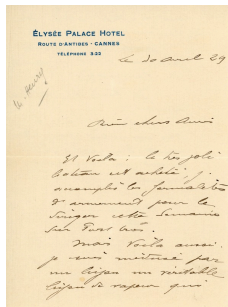 ÉLYSÉE PALACE HOTEL
ROUTE D'ANTIBES - CANNES
TÉLÉPHONE 5-22
le 30 avril 29
chers Amis
Et voilà : le très joli
bateau est acheté, j'
accomplis les formalités
d'armement pour le
cette semaine
sur
Mais voilà aussi
je suis par
un bijou un véritable
bijou de vapeur qui